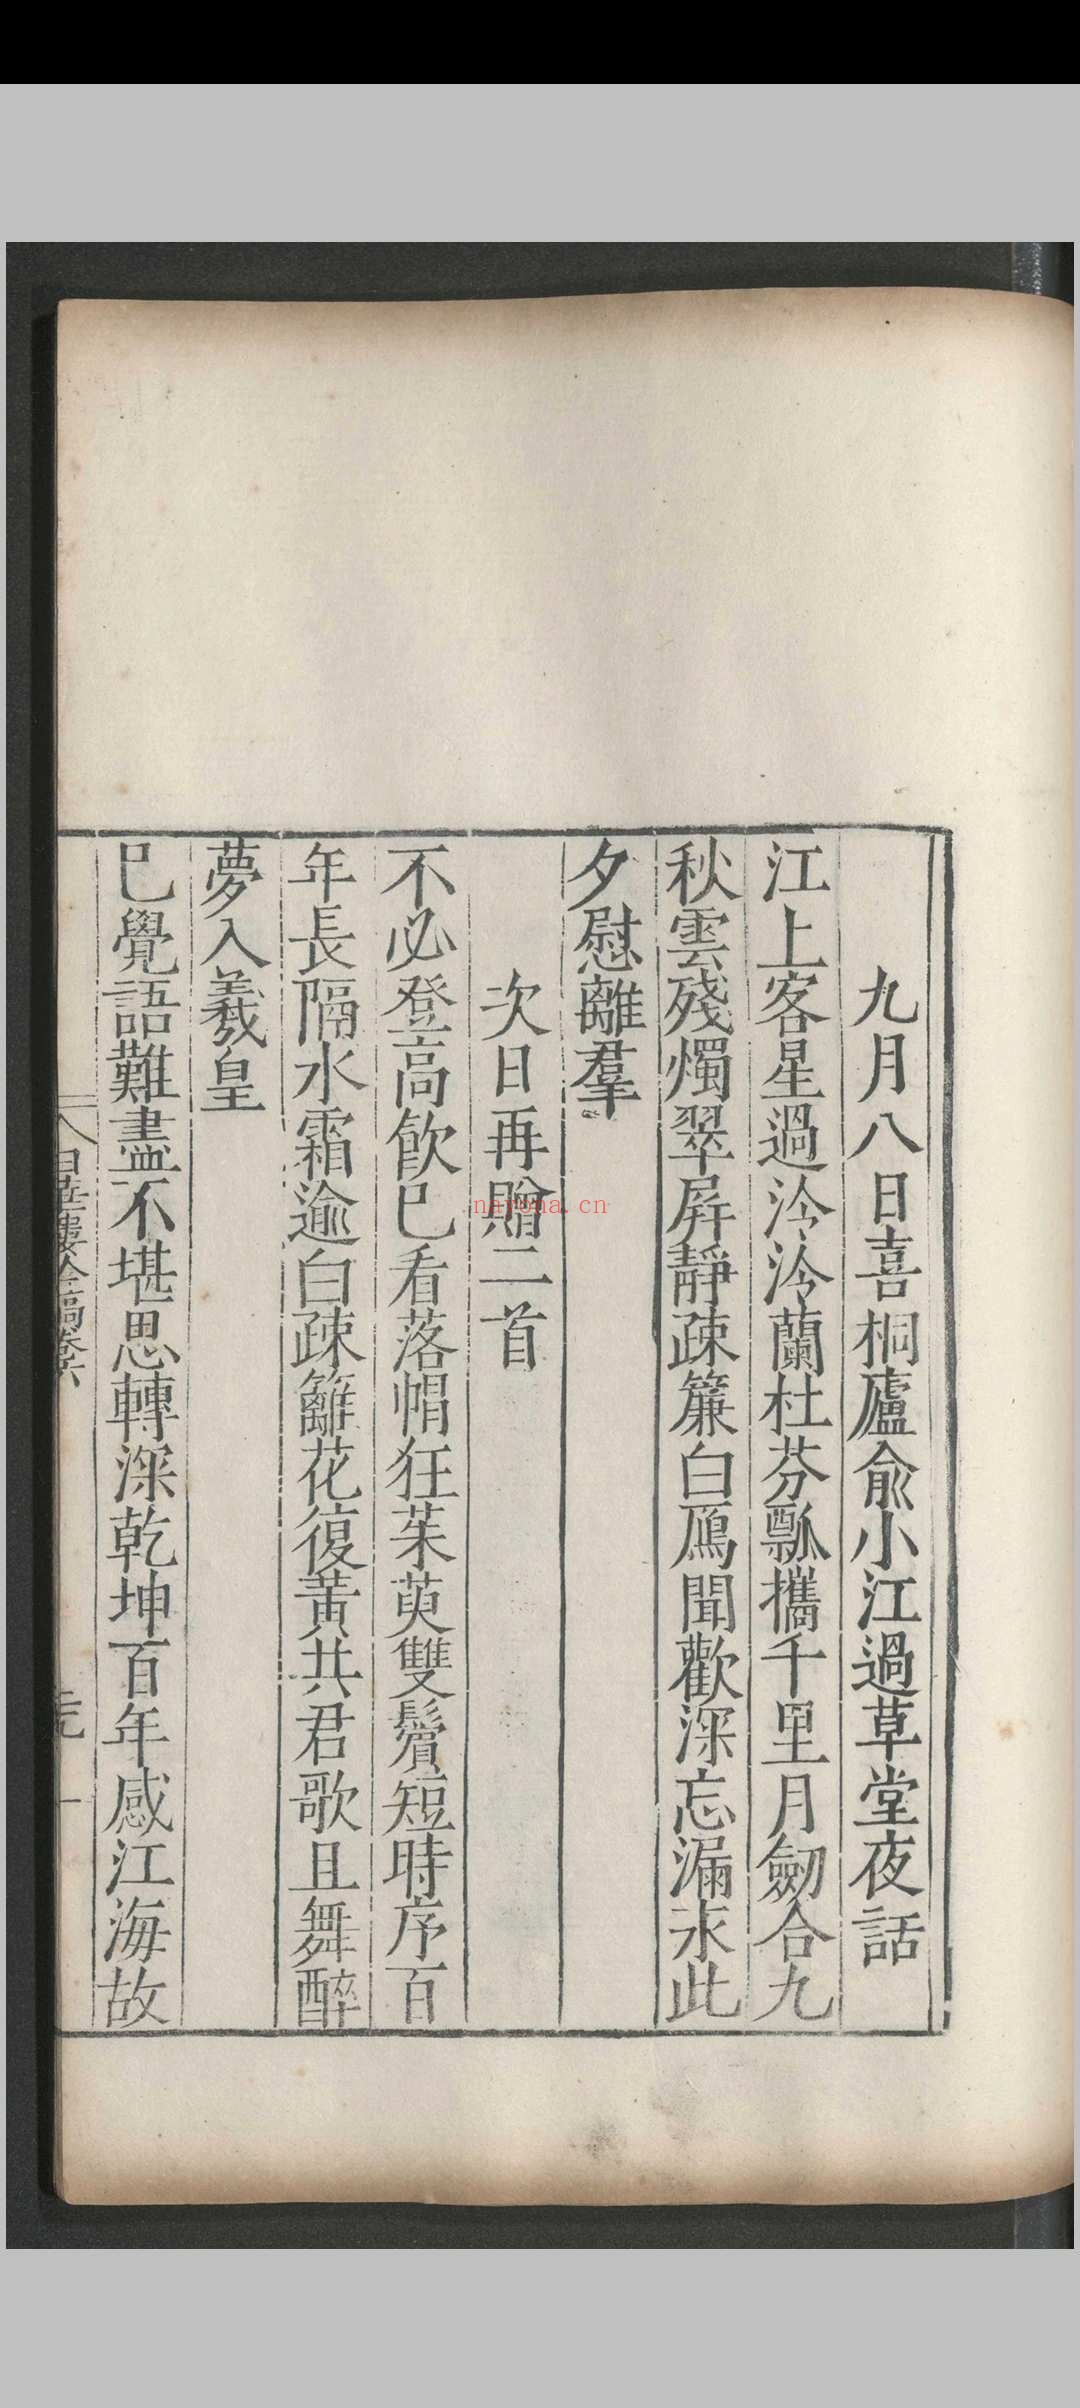 九月八日喜桐廬俞小江過草堂夜話
江上客星過泠泠蘭杜芬瓢攜千里月劒合九
秋雲殘燭翠屛靜疎簾白鴈聞歡深忘漏永此
夕慰離羣
次日再贈二首
不必登高飮已看落帽狂茱萸雙鬢短時序百
年長隔水霜逾白疎籬花復黃共君歌且舞醉
夢入羲皇
已覺語難盡不堪思轉深乾坤百年感江海故
nayona.cn